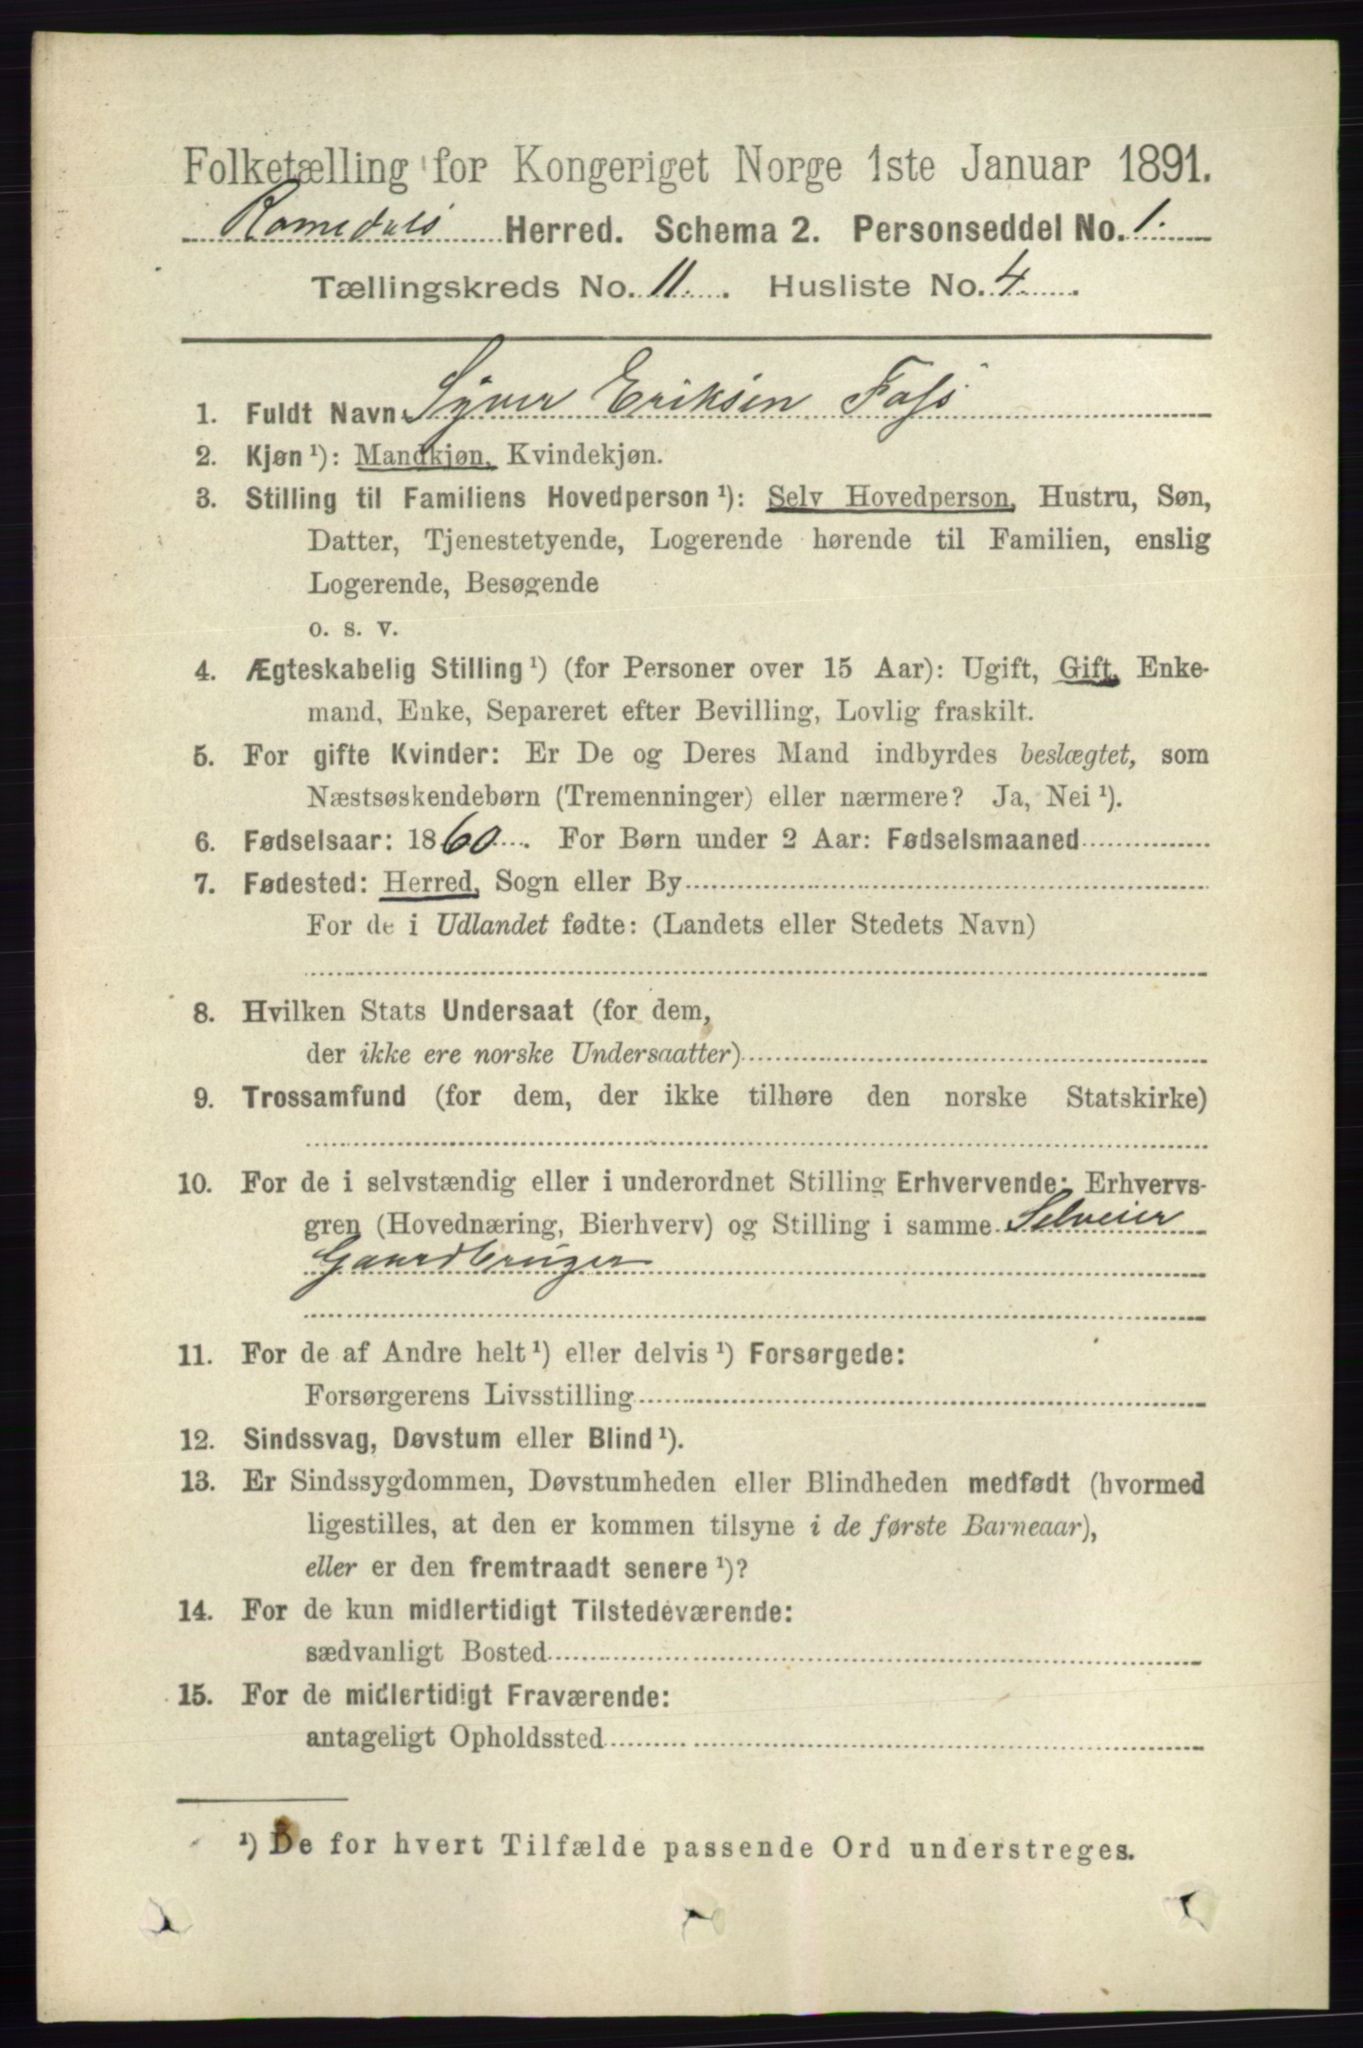 Folketælling for Kongeriget Norge 1ste Januar 1891.
Romedals Herred. Schema 2. Personseddel No. 1.
Tællingskreds No. 11. Husliste No. 4
1. Fuldt Navn Syver Eriksen Foss
2. Kjøn ¹): Mandkjøn, Kvindekjøn.
3. Stilling til Familiens Hovedperson ¹): Selv Hovedperson, Hustru, Søn,
Datter, Tjenestetyende, Logerende hørende til Familien, enslig
Logerende, Besøgende
o. s. v.
4. Ægteskabelig Stilling ¹) (for Personer over 15 Aar): Ugift, Gift, Enke-
mand, Enke, Separeret efter Bevilling, Lovlig fraskilt.
5. For gifte Kvinder: Er De og Deres Mand indbyrdes beslægtet, som
Næstsøskendebørn (Tremenninger) eller nærmere? Ja, Nei ¹).
6. Fødselsaar: 1860. For Børn under 2 Aar: Fødselsmaaned
7. Fødested: Herred, Sogn eller By
For de i Udlandet fødte: (Landets eller Stedets Navn)
8. Hvilken Stats Undersaat (for dem,
der ikke ere norske Undersaatter)
9. Trossamfund (for dem, der ikke tilhøre den norske Statskirke)
10. For de i selvstændig eller i underordnet Stilling Erhvervende: Erhvervs-
gren (Hovednæring, Bierhverv) og Stilling i samme Selveier
Gaardbruger
11. For de af Andre helt ¹) eller delvis ¹) Forsørgede:
Forsørgerens Livsstilling
12. Sindssvag, Døvstum eller Blind ¹).
13. Er Sindssygdommen, Døvstumheden eller Blindheden medfødt (hvormed
ligestilles, at den er kommen tilsyne i de første Barneaar),
eller er den fremtraadt senere ¹)?
14. For de kun midlertidigt Tilstedeværende:
sædvanligt Bosted
15. For de midlertidigt Fraværende:
antageligt Opholdssted
¹) De for hvert Tilfælde passende Ord understreges.